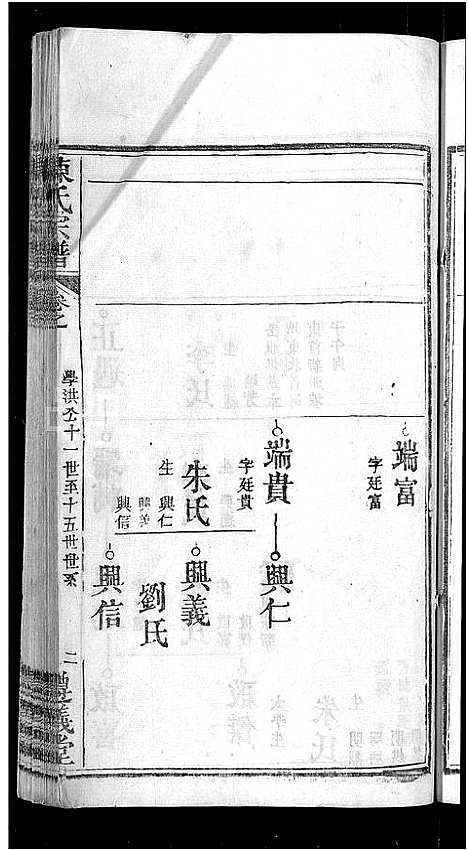 端富
字廷富
端貴
字廷貴
興仁
朱氏
生
興仁
興義
興信
興義
劉氏
興信
陳氏宗譜
卷之
學洪公十一世至十五世世系
二